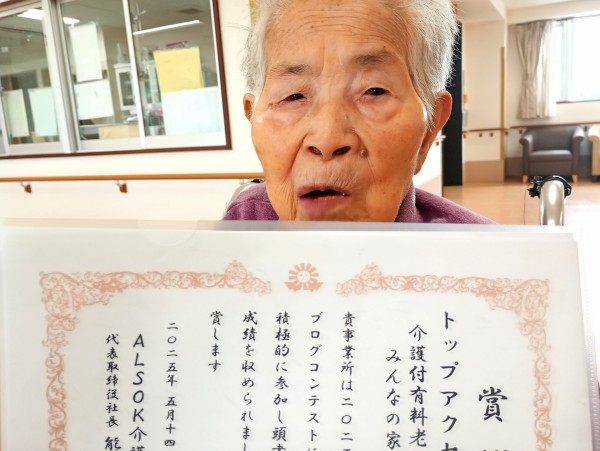 賞
トップアクセ
介護付有料老
みんなの家
貴事業所は二〇二
ブログコンテスト
積極的に参加し頭書
成績を収められまし
賞します
二〇二五年 五月十四
ALSOK介護
代表取締役社長 熊